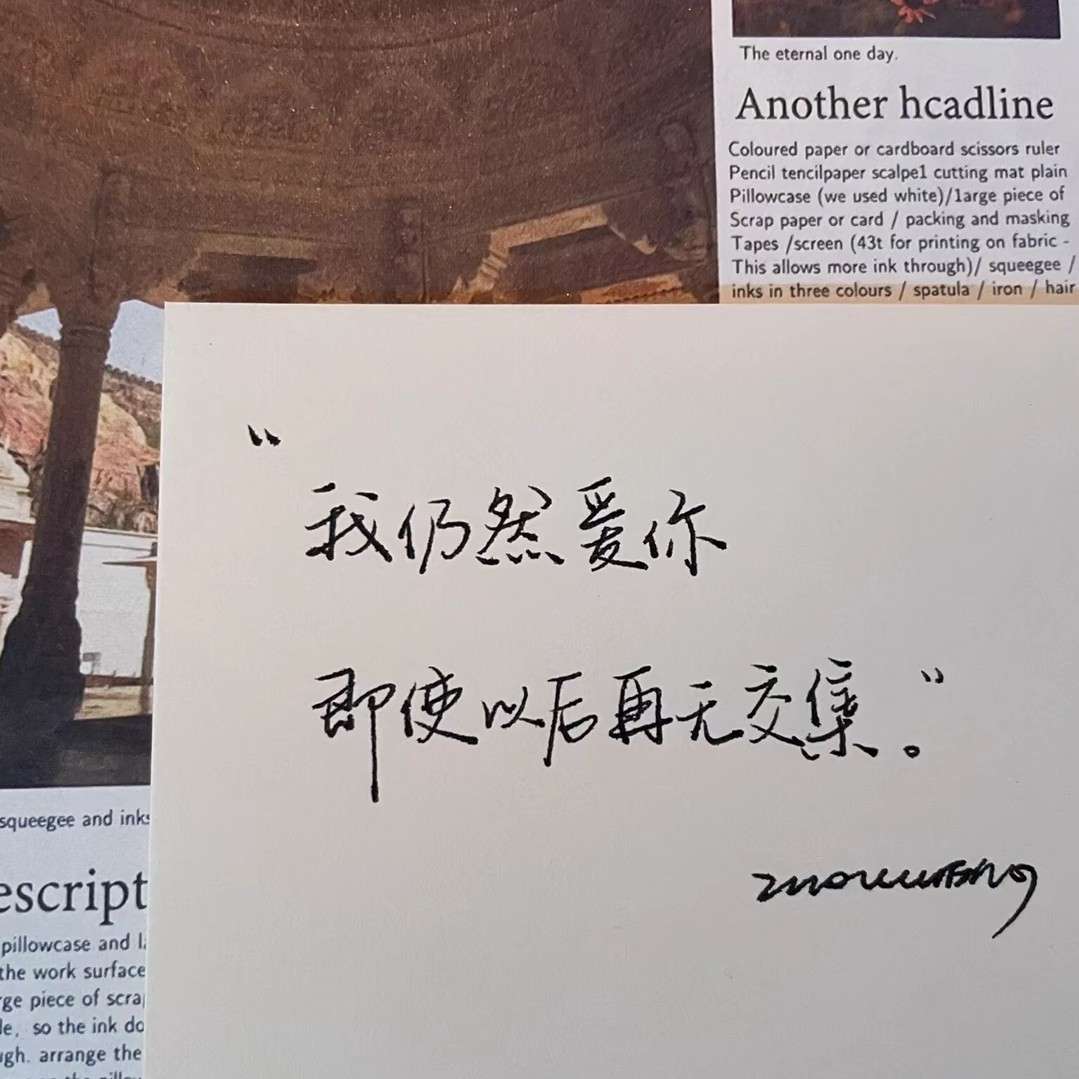 The eternal one day.
Another hcadline
Coloured paper or cardboard scissors ruler
Pencil tencilpaper scalpe1 cutting mat plain
Pillowcase (we used white)/1arge piece of
Scrap paper or card / packing and masking
Tapes /screen (43t for printing on fabric -
This allows more ink through)/ squeegee /
inks in three colours / spatula / iron / hair
"我仍然爱你
即使以后再无交集。"
squeegee and inks
escript
pillowcase and l
the work surface
rge piece of scra
le, so the ink do
ugh. arrange the